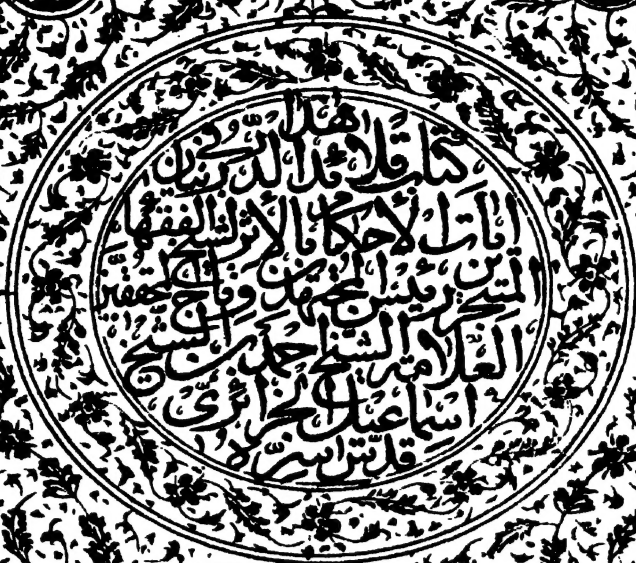 هذا
كتاب قلائد الدرر في بيان
ايات الأحكام بالأثر لشيخ الفقهاء
المتبحرين رئيس المجتهدين وتاج المحققين
العلامة الشيخ احمد بن الشيخ
اسماعيل الجزائرى
قدس سره